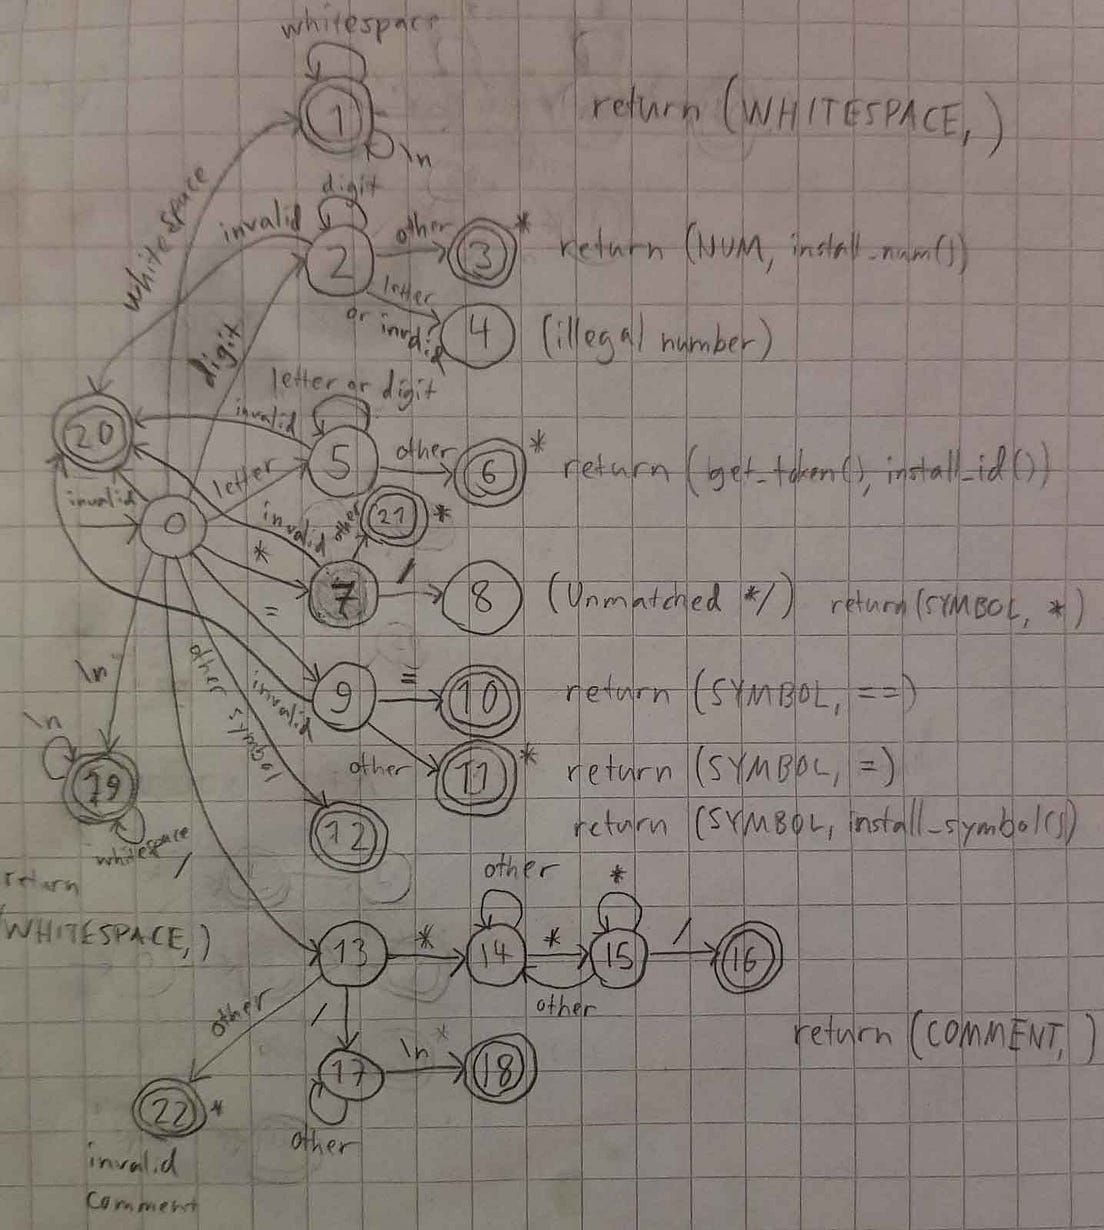 whitespace
1
return (WHITESPACE, )
\n
whitespace
digit
invalid
other
*
2
3
return (NUM, install_num())
letter
or invalid
digit
4
(illegal number)
letter or digit
20
invalid
5
other
*
6
return (get_token(), install_id())
letter
invalid
0
invalid
other
21
*
*
7
/
8
(Unmatched */)
return (SYMBOL, *)
=
\n
other symbol
invalid
9
=
10
return (SYMBOL, ==)
\n
19
other
11
*
return (SYMBOL, =)
whitespace
12
return (SYMBOL, install_symbol())
/
return
(WHITESPACE, )
other
*
13
*
14
*
15
/
16
other
other
/
return (COMMENT, )
17
\n
*
18
22
*
other
invalid
comment